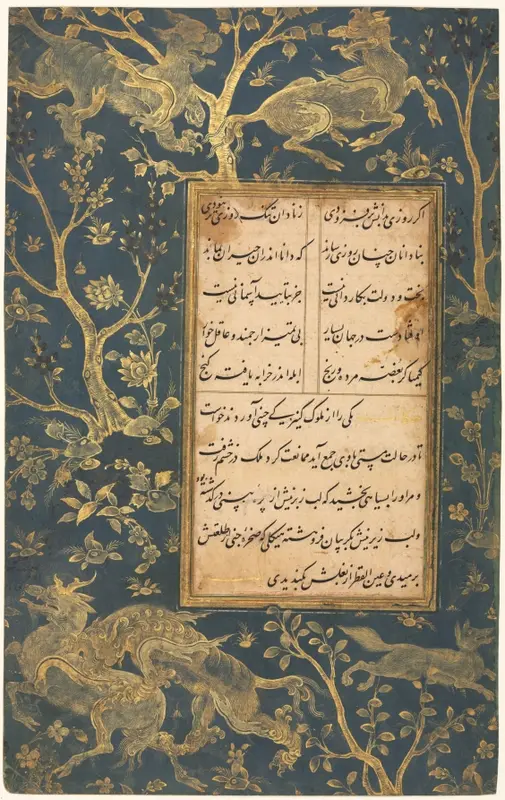 اگر روزی بدانش بر فزودی    ز نادان تنگ روزی تر نبودی
بنادانان چنان روزی رساند    که دانا اندران حیران بماند
بخت و دولت بکاردانی نیست    جز بتایید آسمانی نیست
اوفتادست در جهان بسیار    بی تمیز ارجمند و عاقل خوار
کیمیاگر بغصه مرده و رنج    ابله اندر خرابه یافته گنج
یکی را از ملوک کنیزکی چینی آوردند خواست
تا در حالت مستی با وی جمع آید ممانعت کرد ملک در خشم رفت
و مر او را بسیاهی بخشید که لب زبرینش از پره بینی در گذشته بود
ولب زیرینش بگریبان فروهشته هیکلی که صخره جنی از طلعتش
برمیدی و عین القطر از بغلش بگندیدی